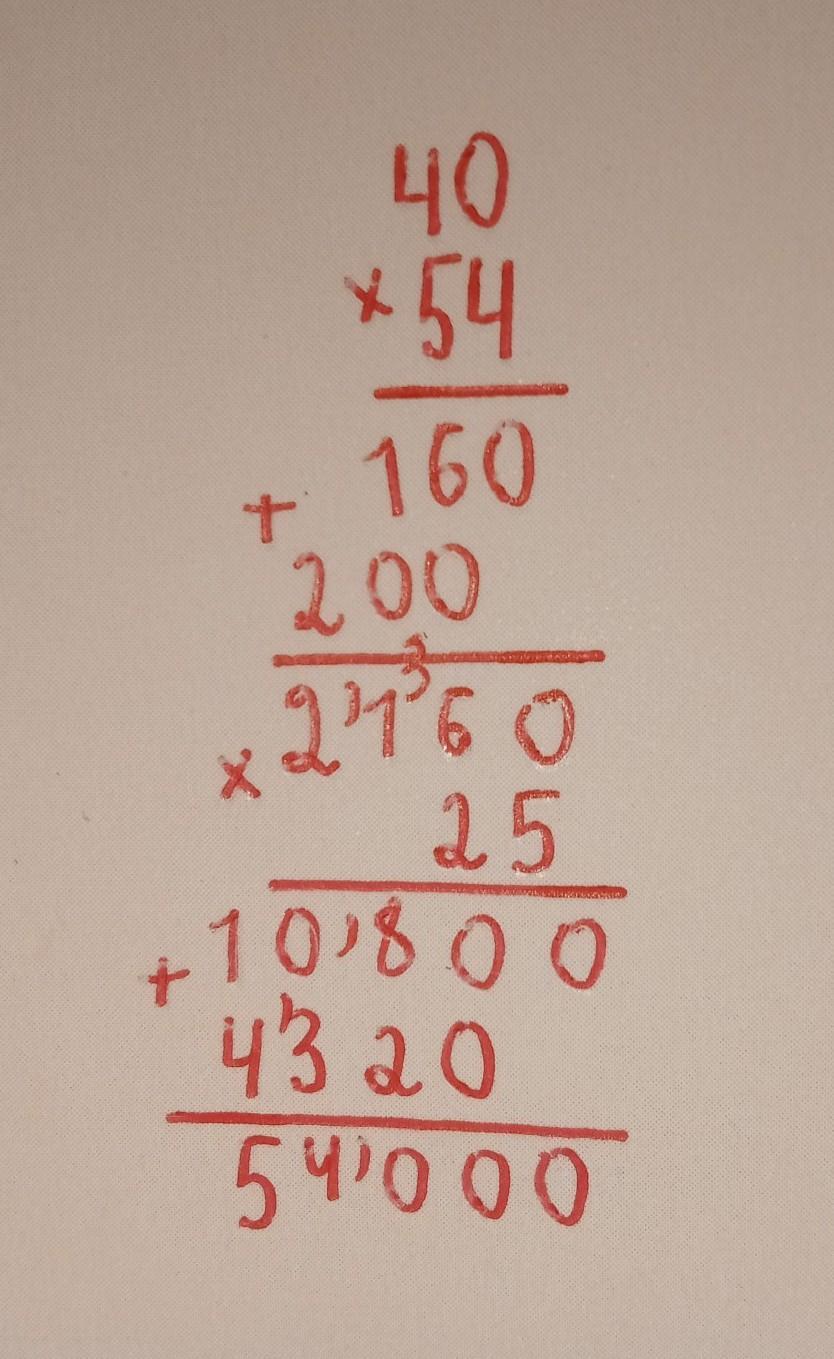 40
× 54
160
+
200
3
2,160
×
25
+ 10,800
4,320
54,000